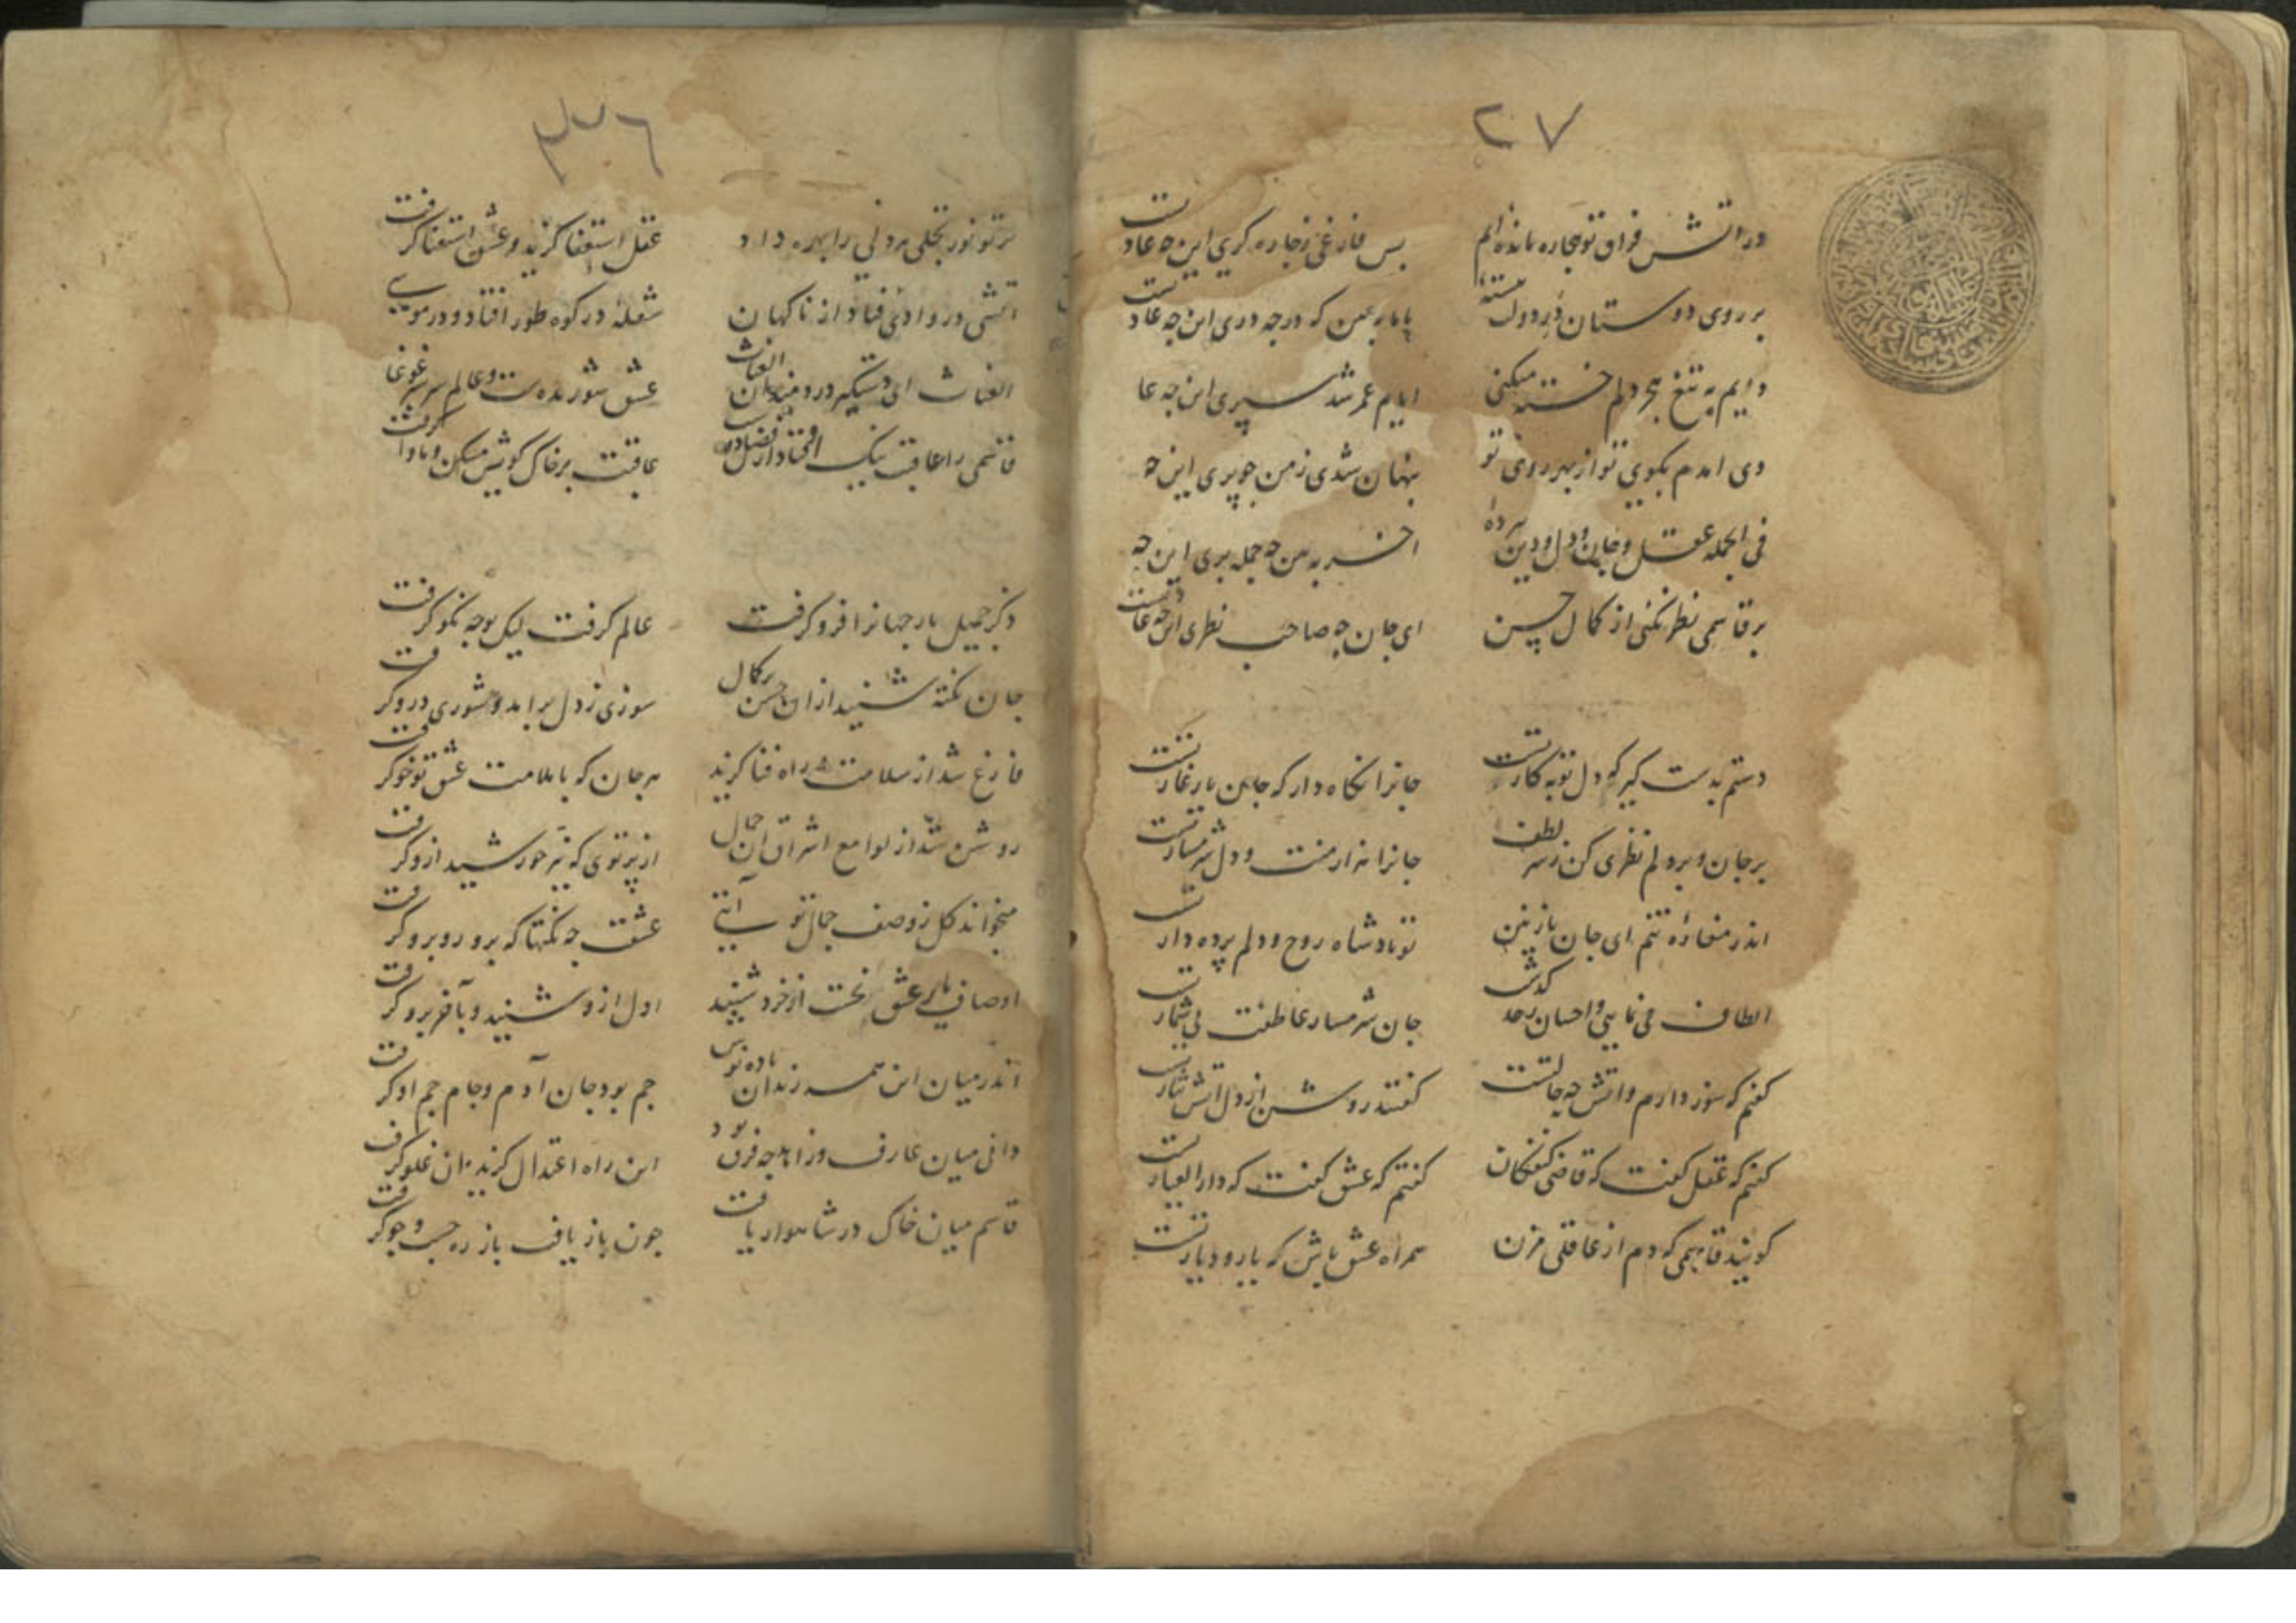 ۲۷
در اتش فراق تو بیچاره مانده ایم
بس فارغی ز چاره کری این چه عادتست
بر روی دوستان در دولت ببسته
با ما بعین که در چه دری این چه عادتست
دایم به تیغ هجر دلم خسته میکنی
ایام عمر شد سپری این چه عا
دی امدم بکوی تو از بهر روی تو
پنهان شدی ز من چو پری این چه
فی الجمله عقل و جان و دل و دین
اخر به من چه جمله بری این چه
بر قاسمی نظر نکنی از کمال حسن
ای جان چو صاحب نظری این چه عادتست
دستم بدست کیر که دل توبه کارتست
جانرا نکاه دار که جان یار غارتست
بر جان و بر دلم نظری کن ز سر لطف
جانرا نه ارمنت و دل شرمسارتست
اندر مغازه تنم ای جان نازنین
تو پادشاه روح و دلم پرده دارتست
الطاف می نمایی و احسان ز حد کذشت
جان شرمسار عاطفت بی شمارتست
کفتم که سوز دارم و اتش چه جالتست
کفتند روشن از دل اتش نثارتست
کفتم که عقل کفت که قاضی کنفکان
کفتم که عشق کفت که دار العیارتست
کویند قاسمی که دم از عاقلی مزن
همراه عشق باش که یار و دیارتست
۳۷۶
پرتو نور تجلی هر دلی را بهره داد
عقل استعفا کزید و عشق استغنا کرفت
اتشی در وادئی فتاد از ناکهان
شعله در کوه طور افتاد و در موسی
الغیاث ای دستکیر دردمندان الغیاث
عشق شورنده ست و عالم سر بسر غوغا کرفت
قاسمی را عاقبت نیک افتاد از فضل
عاقبت بر خاک کویش مسکن و ماوا
ذکر جمیل یار جهانرا فرو کرفت
عالم کرفت لیک بوجه نکو کرفت
جان نکته شنید از ان حسن بر کمال
سوزی ز دل برامد و شوری درو کرفت
فارغ شد از سلامت و راه فنا کزید
هر جان که با ملامت عشق تو خو کرفت
روشن شد از لوامع اشراق ان جمال
از پرتوی که نیر خورشید ازو کرفت
میخواند کل ز وصف جمال تو آیتی
عشقت چه نکتها که برو روبرو کرفت
اوصاف یار عشق نخست از خرد شنید
اول ازو شنید و بآخر برو کرفت
اندر میان این همه رندان باده نوش
جم بود جان آدم و جام جم او کرفت
دانی میان عارف و زاهد چه فرق بود
این راه اعتدال کزید ان غلو کرفت
قاسم میان خاک در شاهوار یافت
چون باز یافت باز ره جست و جو کرفت